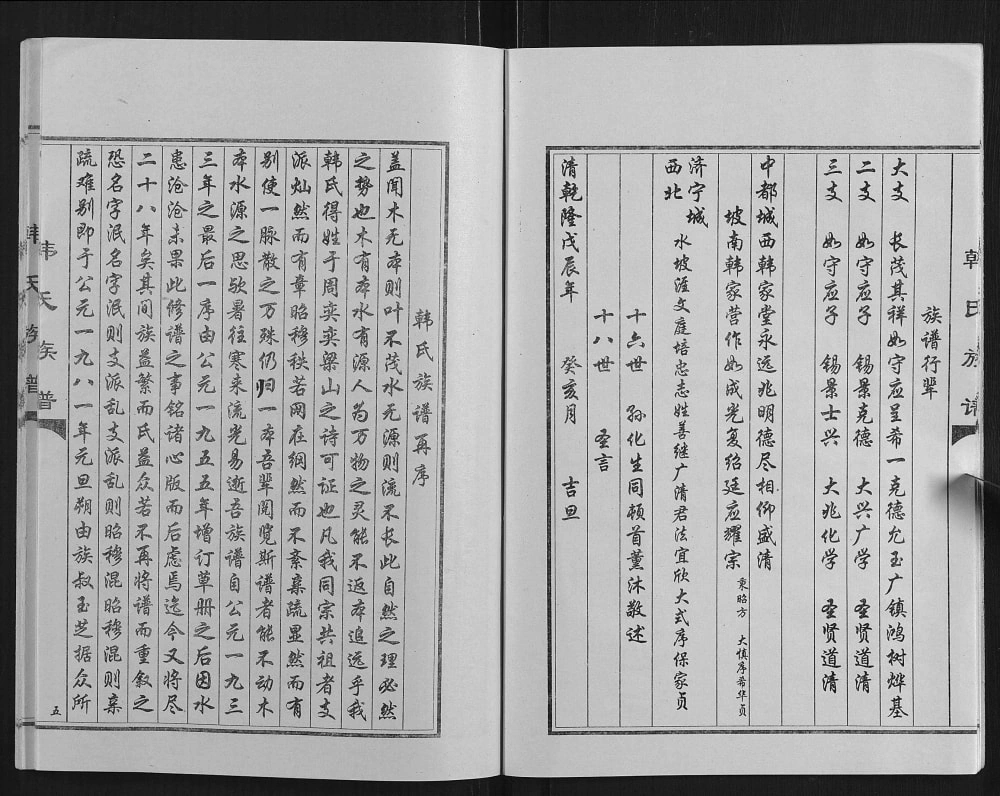 韩氏族谱
族谱行辈
大支 长茂其祥如守应呈希一克德允玉广镇鸿树烨基
二支 如守应子 锡景克德 大兴广学 圣贤道清
三支 如守应子 锡景士兴 大兆化学 圣贤道清
中都城西韩家堂永远兆明德尽相仰盛清
坡南韩家营作如成光复绍廷应耀宗 东昭方 大慎序希华贞
济宁城西北 水坡涯文庭培忠志姓善继广清君法宜欣大式序保家贞
十六世 孙化生同顿首薰沐敬述
十八世 圣言
清乾隆戊辰年 癸亥月 吉旦
韩氏族谱再序
盖闻木无本则叶不茂水无源则流不长此自然之理必然
之势也木有本水有源人为万物之灵能不返本追远乎我
韩氏得姓于周奕奕梁山之诗可证也凡我同宗共祖者支
派灿然而有章昭穆秩若网在纲然而不紊亲疏显然而有
别使一脉散之万殊仍归一本吾辈阅览斯谱者能不动木
本水源之思欤暑往寒来流光易逝吾族谱自公元一九三
三年之最后一序由公元一九五五年增订草册之后因水
患沧沧未果此修谱之事铭诸心版而后虑焉迄今又将尽
二十八年矣其间族益繁而氏益众若不再将谱而重叙之
恐名字泯名字泯则支派乱支派乱则昭穆混昭穆混则亲
疏难别即于公元一九八一年元旦朔由族叔玉芝据众所
五
韩氏族谱
韩氏族谱